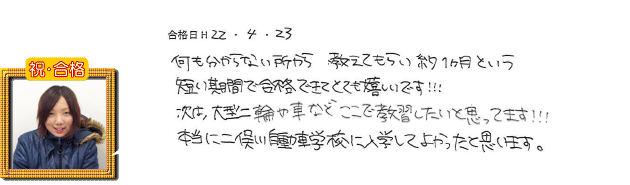 合格日H22・4・23
祝・合格
何も分からない所から 教えてもらい 約1ヶ月という
短い期間で合格できてとても嬉しいです!!!
次は、大型二輪や車など ここで教習したいと思ってます!!!
本当に二俣川自動車学校に入学してよかったと思います。